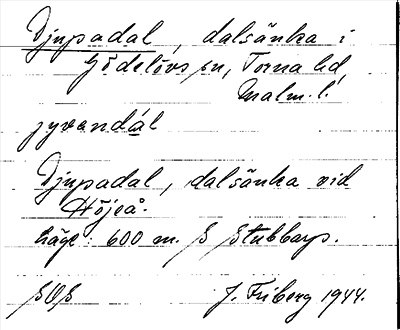 Djupadal, dalsänka i
Gödelövs sn, Torna hd,
Malm. l.
jyvandál
Djupadal, dalsänka vid
Höjeå.
Läge: 600 m. S Stubbarp.
SOS J. Friberg 1944.